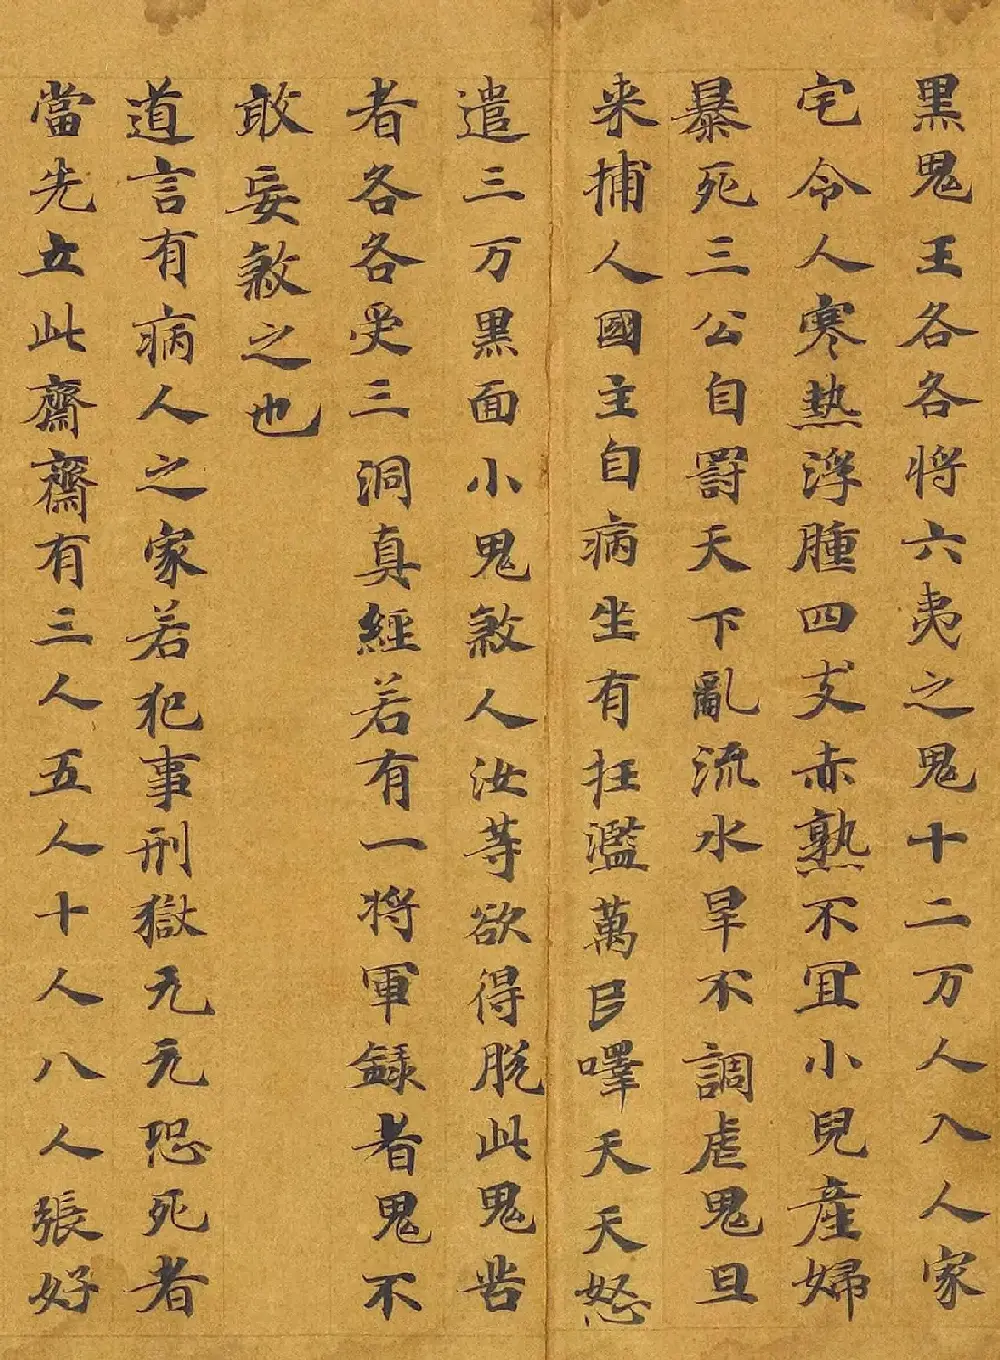 黒鬼王各各将六夷之鬼十二万人入人家
宅令人寒熱浮腫四支赤熟不冝小兒產婦
暴死三公自罸天下亂流水旱不調虐鬼旦
来捕人國主自病坐有抂濫萬民嘩天天怒
遣三万黒面小鬼煞人汝等欲得脱此鬼苦
者各各受三洞真經若有一将軍錄者鬼不
敢妄煞之也
道言有病人之家若犯事刑獄元元恐死者
當先立此齋齋有三人五人十人八人張好